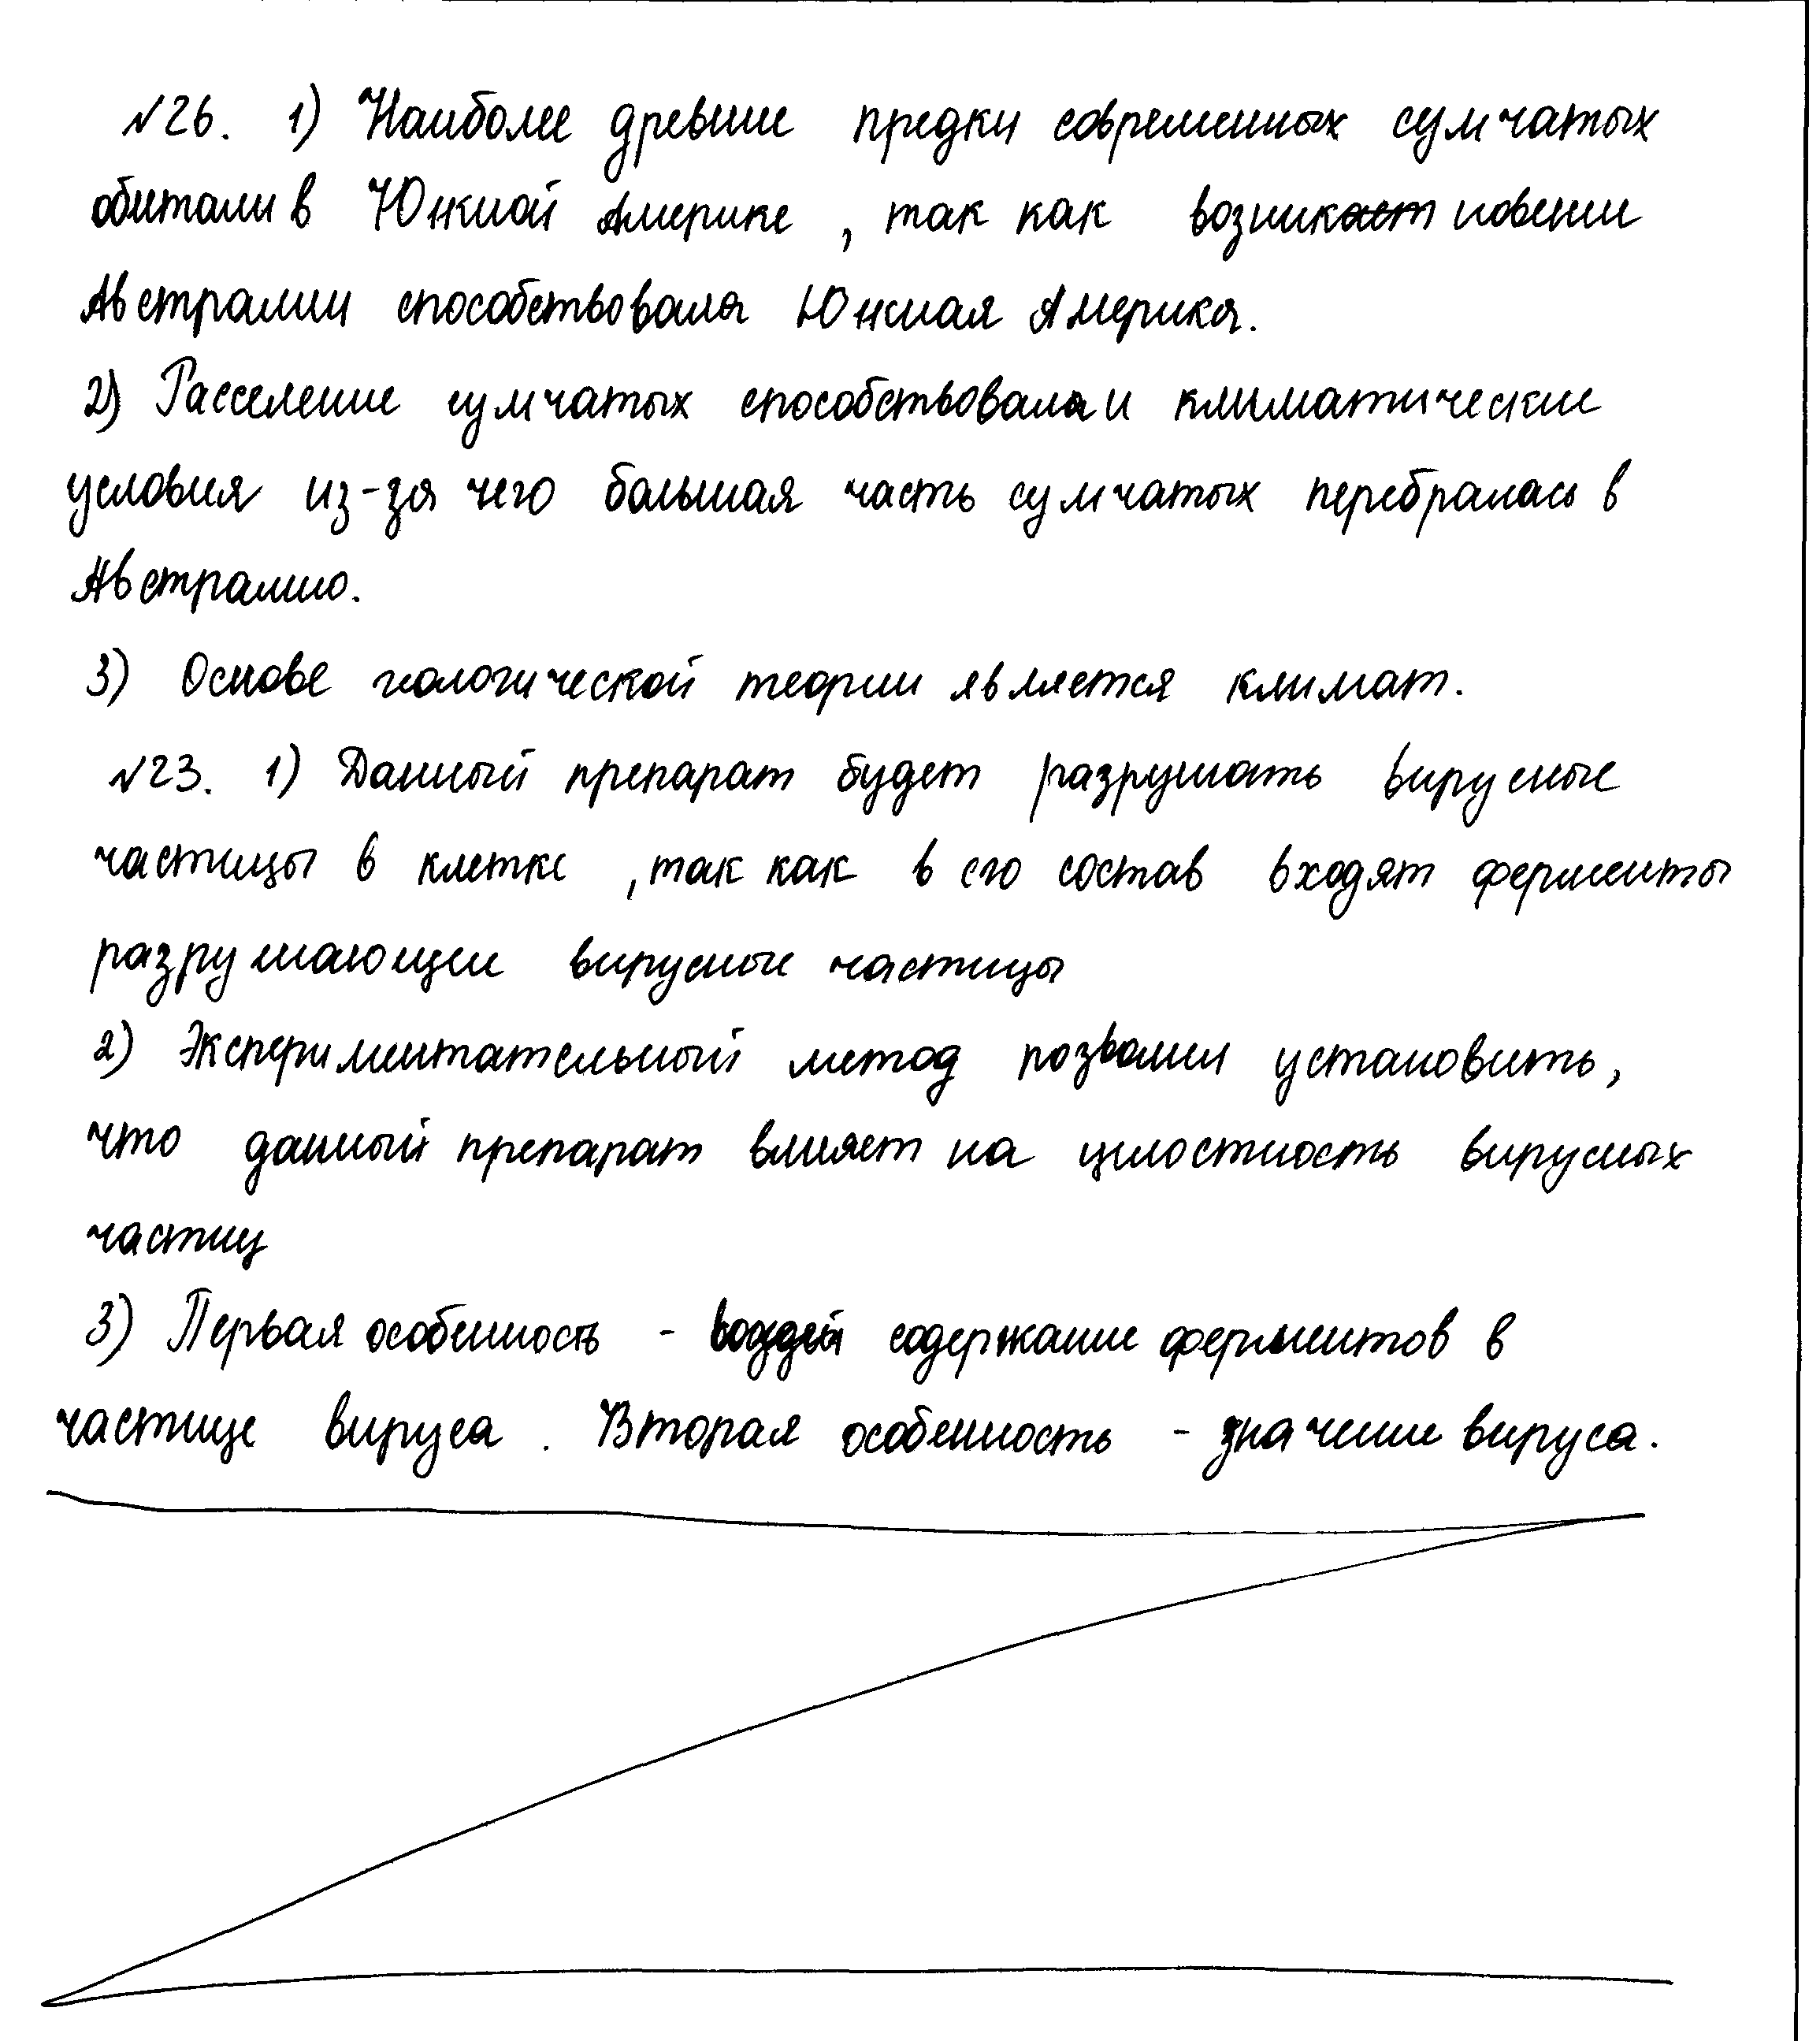 №26. 1) Наиболее древние предки современных сумчатых
обитали в Южной Америке, так как возникновении
Австралии способствовала Южная Америка.
2) Расселение сумчатых способствовали климатические
условия из-за чего большая часть сумчатых перебралась в
Австралию.
3) Основе геологической теории является климат.
№23. 1) Данный препарат будет разрушать вирусные
частицы в клетке, так как в его состав входят ферменты
разрушающие вирусные частицы
2) Экспериментательный метод позволил установить,
что данный препарат влияет на целостность вирусных
частиц
3) Первая особенность - содержание ферментов в
частице вируса. Вторая особенность - значение вируса.